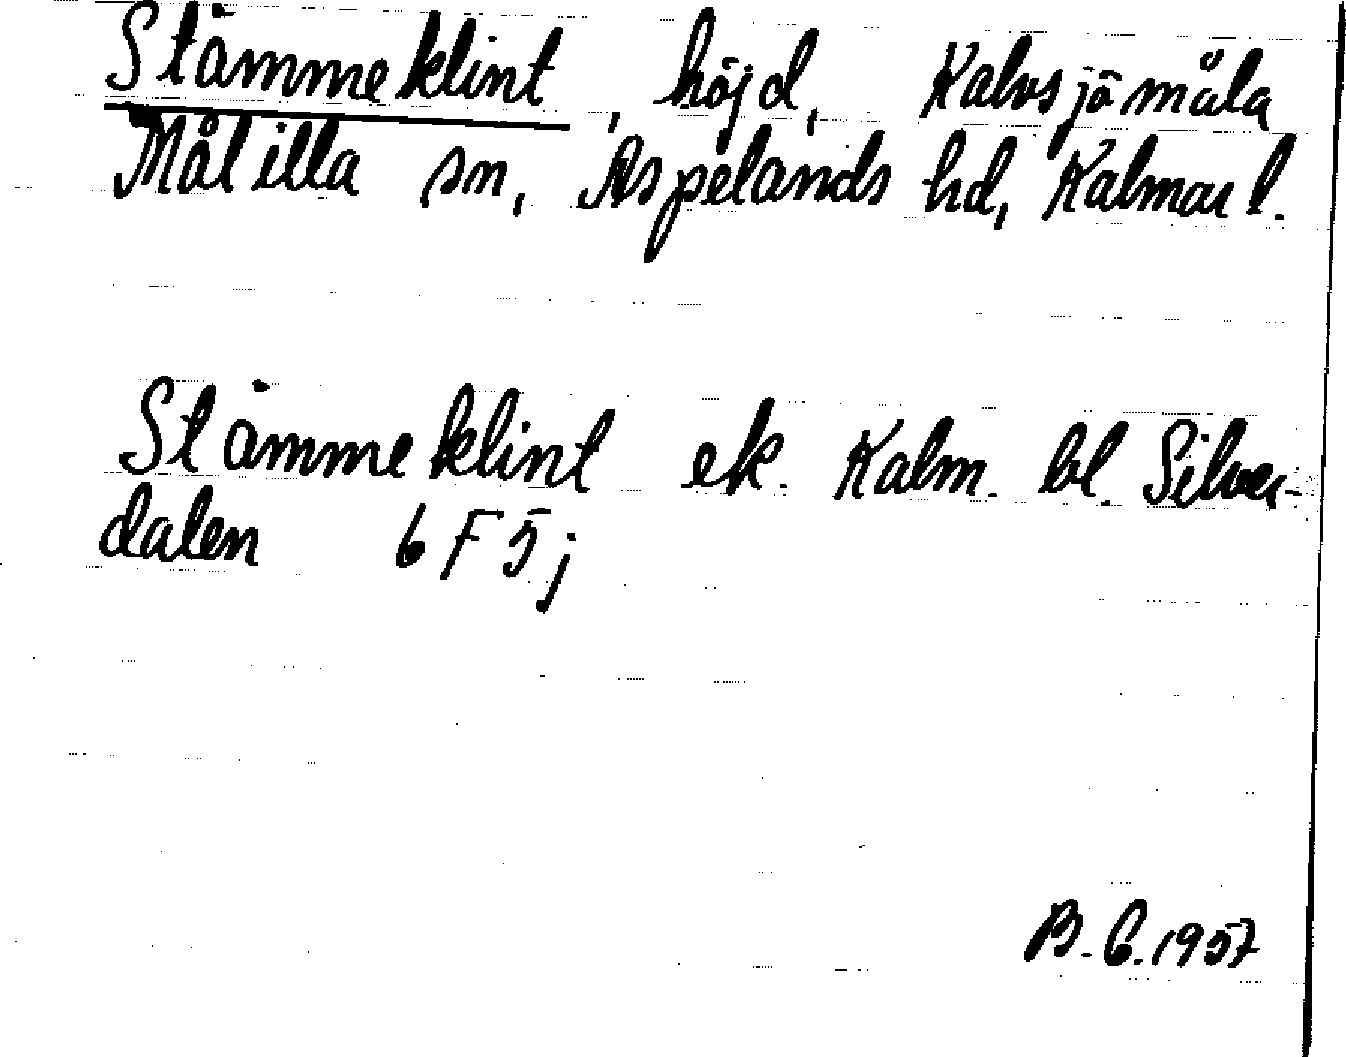 Stämmeklint, höjd, Kalvsjömåla
Målilla sn, Aspelands hd, Kalmar l.
Stämmeklint ek. Kalm. bl. Silver-
dalen 6 F 5 j
B. G. 1957